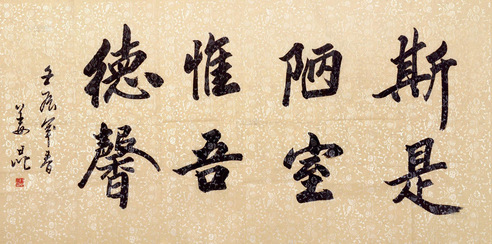 斯是
陋室
惟吾
德馨
壬辰年春
姜昆